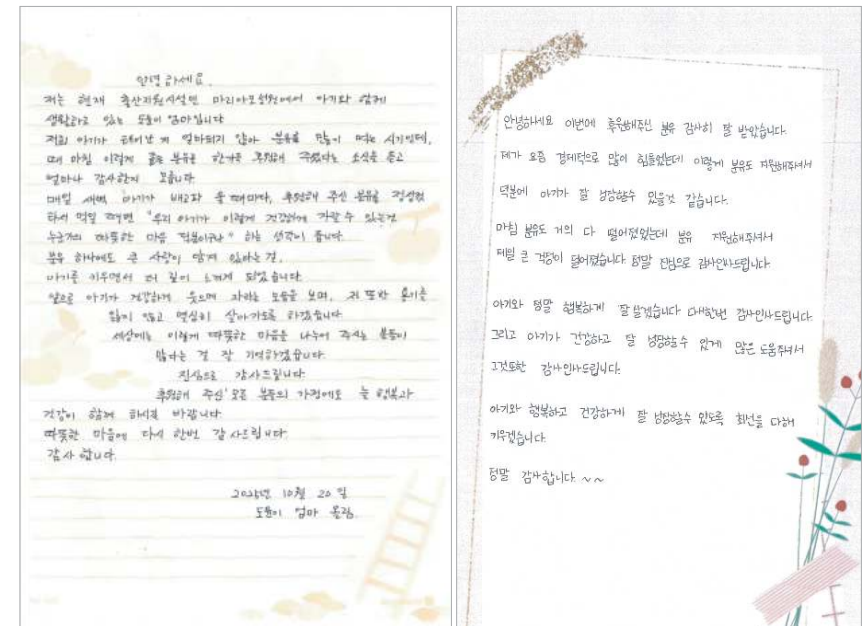 안녕하세요.
저는 현재 출산지원시설인 마리아모성원에서 아기와 함께
생활하고 있는 도윤이 엄마입니다
저희 아기가 태어난 지 얼마되지 않아 분유를 많이 먹는 시기인데,
때 마침 이렇게 좋은 분유를 한가득 후원해 주셨다는 소식을 듣고
얼마나 감사한지 모릅니다.
매일 새벽 아기가 배고파 울 때마다, 후원해 주신 분유를 정성껏
타서 먹일 때면 "우리 아기가 이렇게 건강하게 자랄 수 있는건
누군가의 따뜻한 마음 덕분이구나" 하는 생각이 듭니다.
분유 하나에도 큰 사랑이 담겨 있다는 걸,
아기를 키우면서 더 깊이 느끼게 되었습니다.
앞으로 아기가 건강하게 웃으며 자라는 모습을 보며, 저 또한 용기를
잃지 않고 열심히 살아가도록 하겠습니다.
세상에는 이렇게 따뜻한 마음을 나누어 주시는 분들이
많다는 걸 잘 기억하겠습니다.
진심으로 감사드립니다.
후원해 주신 모든 분들의 가정에도 늘 행복과
건강이 함께 하시길 바랍니다.
따뜻한 마음에 다시 한번 감사드립니다
감사합니다.
2025년 10월 20일
도윤이 엄마 올림.
안녕하세요 이번에 후원해주신 분유 감사히 잘 받았습니다.
제가 요즘 경제적으로 많이 힘들었는데 이렇게 분유도 지원해주셔서
덕분에 아기가 잘 성장할수 있을것 같습니다.
마침 분유도 거의 다 떨어졌었는데 분유 지원해주셔서
제일 큰 걱정이 덜어졌습니다 정말 진심으로 감사인사드립니다
아기와 정말 행복하게 잘살겠습니다 다시한번 감사인사드립니다.
그리고 아기가 건강하고 잘 성장할수 있게 많은 도움주셔서
그것또한 감사인사드립니다.
아기와 행복하고 건강하게 잘 성장할수 있도록 최선을 다해
키우겠습니다.
정말 감사합니다 ~~